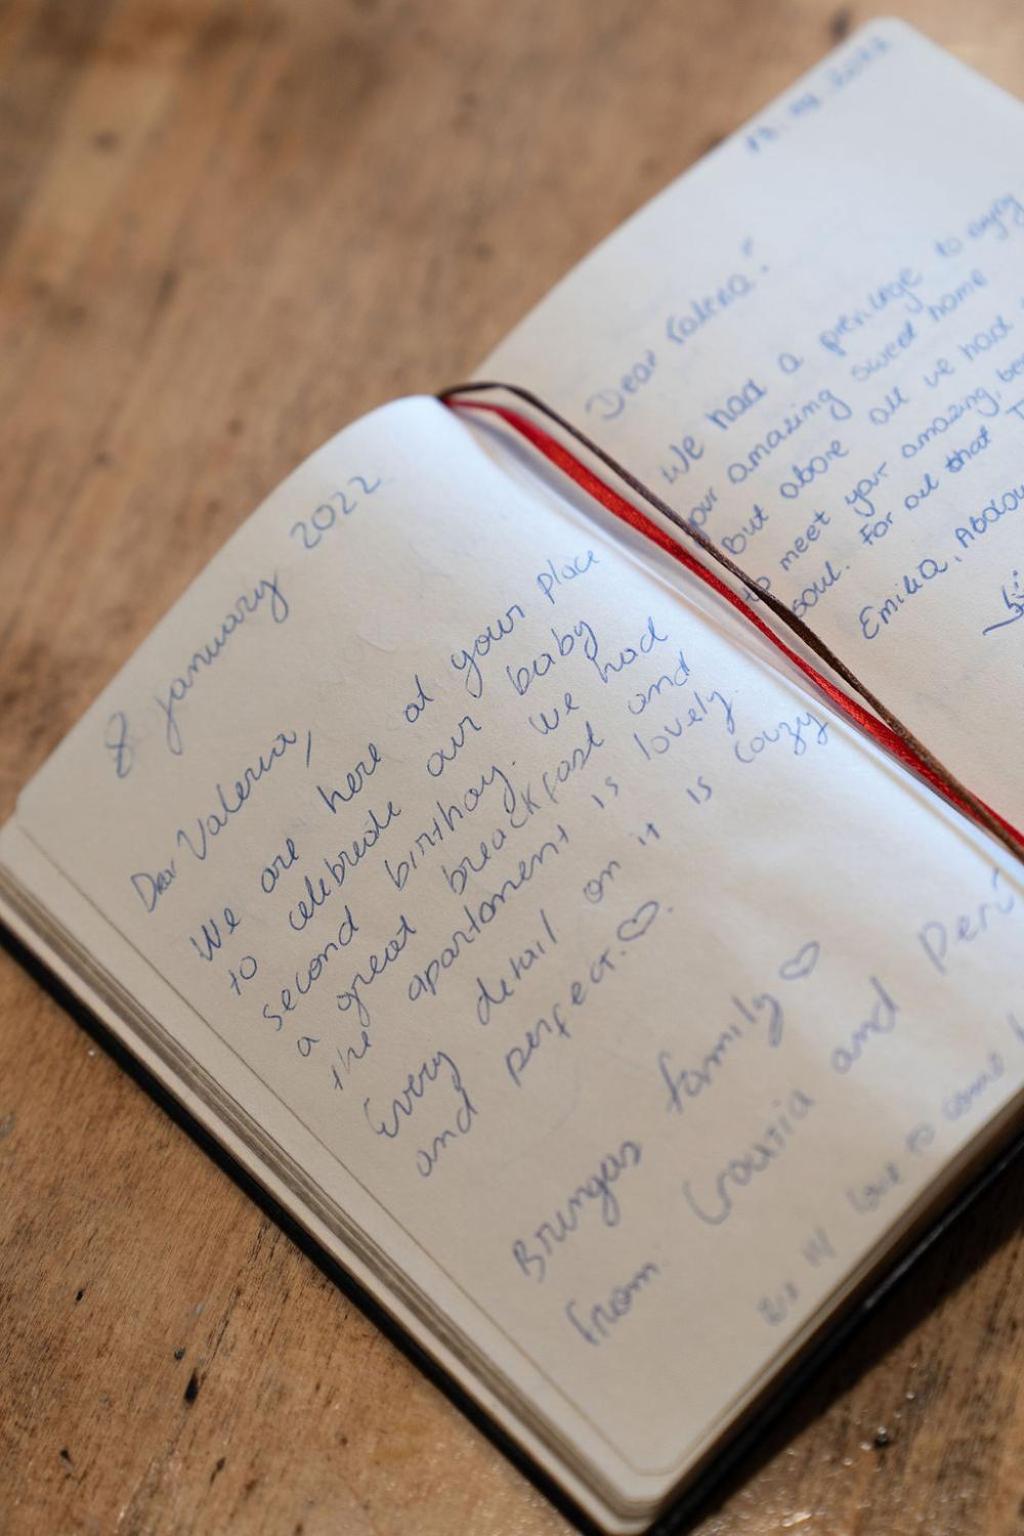 8 january 2022
Dear Valeria,
We are here at your place
to celebrate our baby
second birthay. We had
a great breackfast and
the apartament is lovely.
Every detail on it is cozzy
and perfect. ♡
Brungas family ♡
from Croatia and Perú
love to come
2022
Dear
We had a previlege to enjoy
your amazing sweet home
but above all we had
to meet your amazing,
soul. For all that
Emilia,